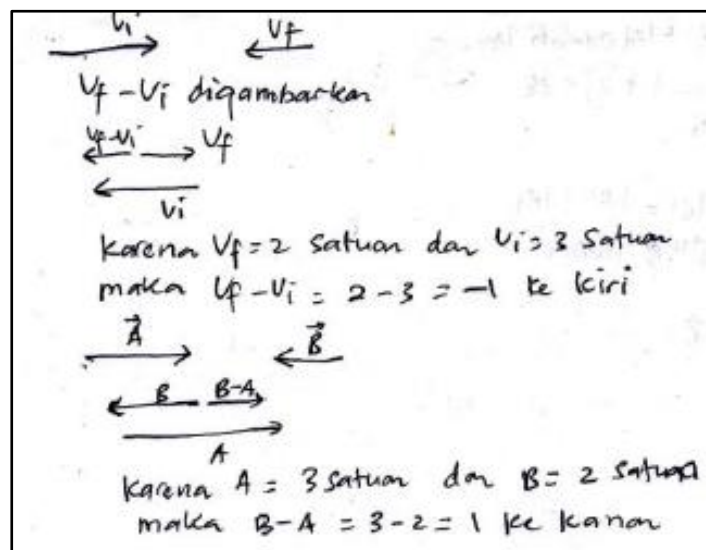 Vi Vf
Vf - Vi digambarkan
Vf-Vi Vf
Vi
karena Vf = 2 satuan dan Vi = 3 satuan
maka Vf - Vi = 2 - 3 = -1 ke kiri
A⃗ B⃗
B B-A
A
karena A = 3 satuan dan B = 2 satuan
maka B-A = 3 - 2 = 1 ke kanan